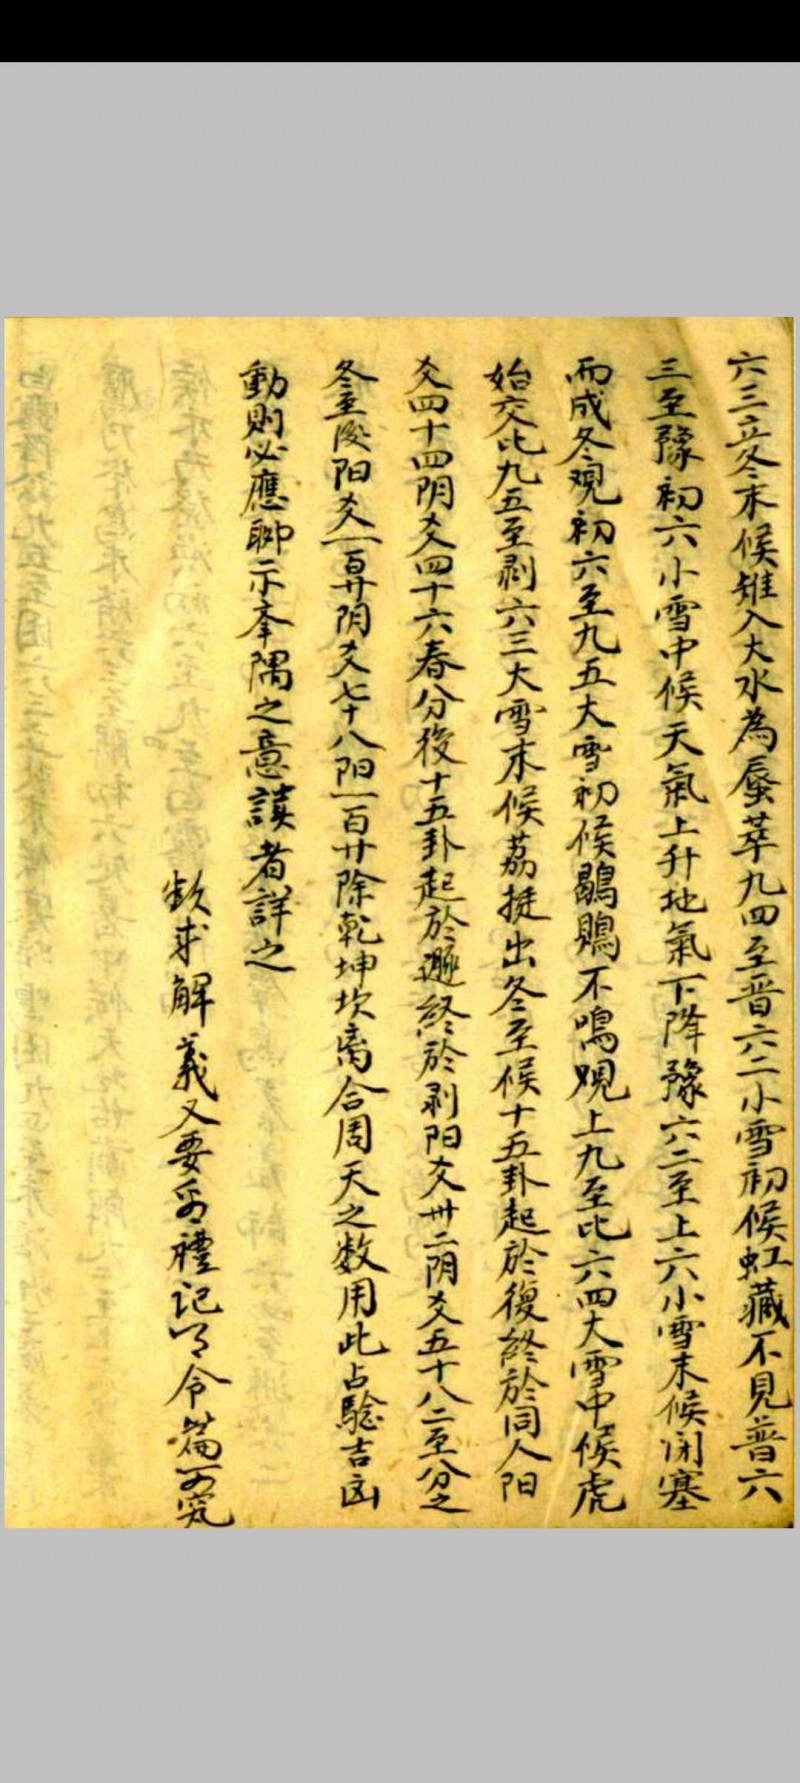 六三立冬末候雉入大水為蜃萃九四至晋六二小雪初候虹藏不見晋六
三至豫初六小雪中候天氣上升地氣下降豫六二至上六小雪末候閉塞
而成冬觀初六至九五大雪初候鶡鴠不鳴觀上九至比六四大雪中候虎
始交比九五至剥六三大雪末候荔挺出冬至候十五卦起於復終於同人阳
爻四十四阴爻四十六春分後十五卦起於遯終於剥阳爻卅二阴爻五十八二至分之
冬至後阳爻一百廿阴爻七十八阳一百廿除乾坤坎离合周天之数用此占驗吉凶
動則必應聊示夲隅之意讀者詳之
欲求解義又要看禮記月令篇可究